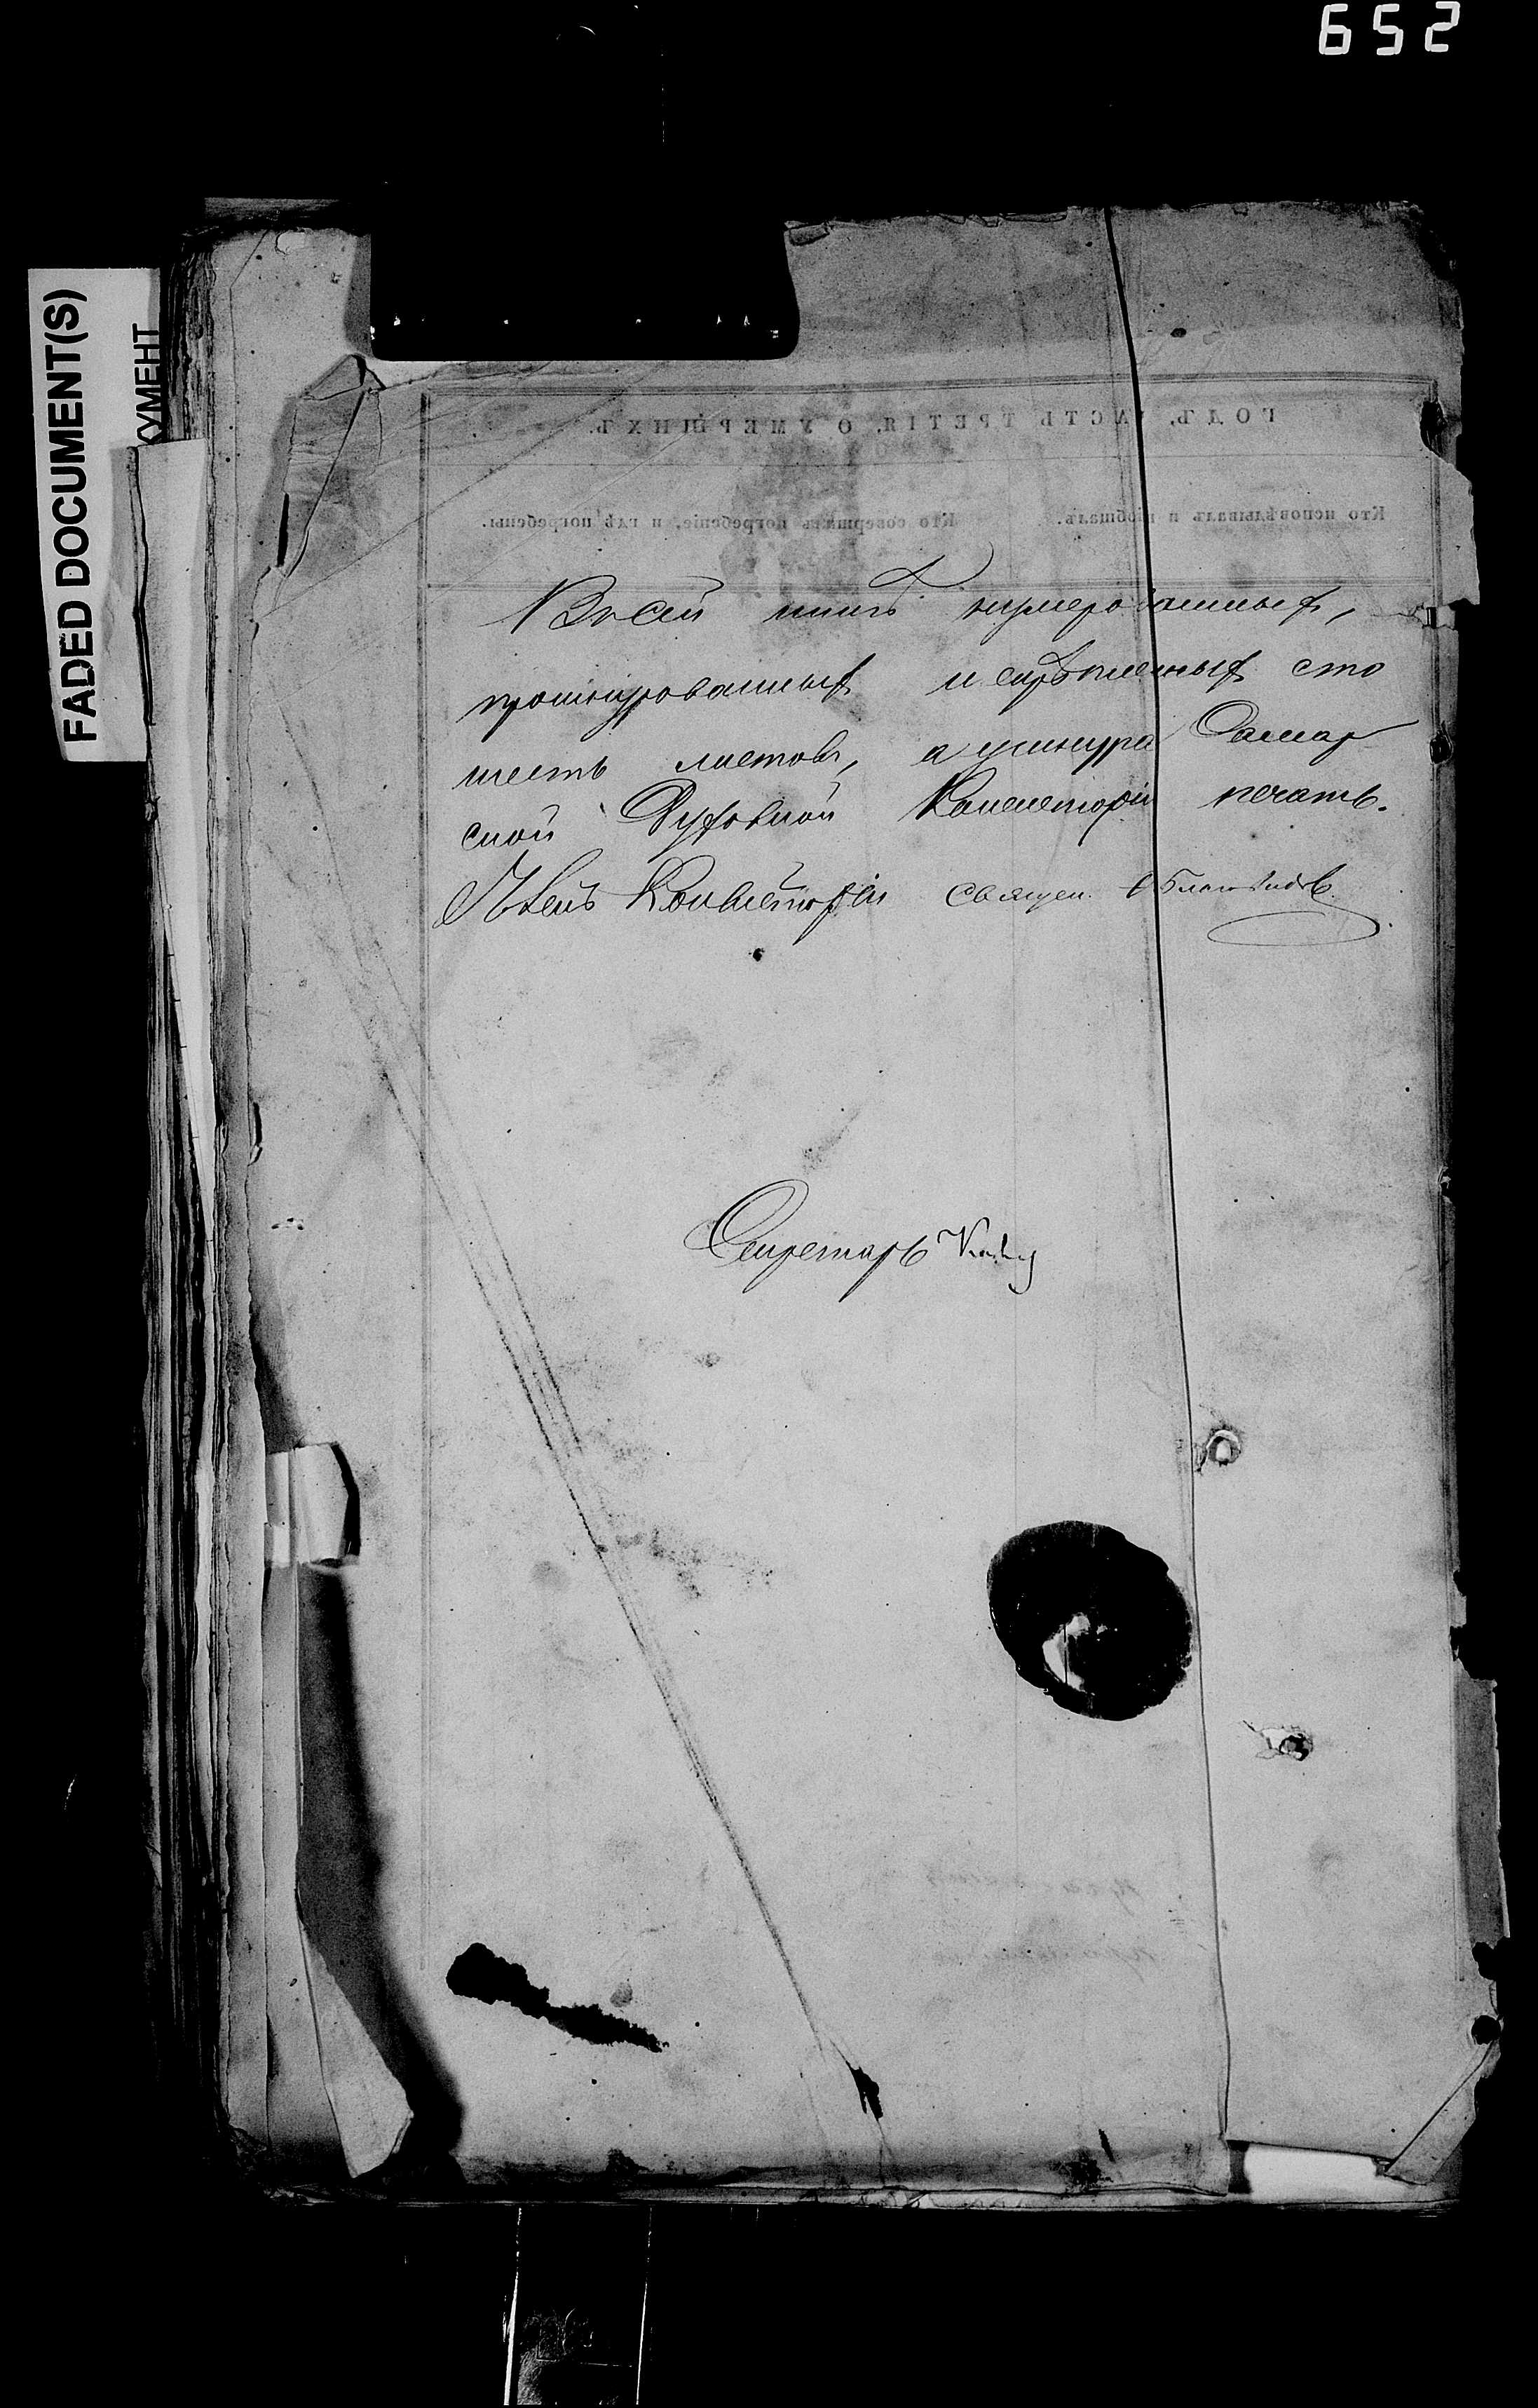 652
FADED DOCUMENT(S)
КУМЕНТ
ГОДЪ, ЧАСТЬ ТРЕТІЯ, О УМЕРШИХЪ.
Кто исповѣдывалъ и пріобщалъ.
Кто совершалъ погребеніе, и гдѣ погребены.
Въ сей книгѣ нумерованныхъ,
прошнурованныхъ и скрѣпленныхъ сто
шесть листовъ, а у шнура Самар
ской Духовной Консисторіи печать.
Членъ Консисторіи Священ.
Секретарь